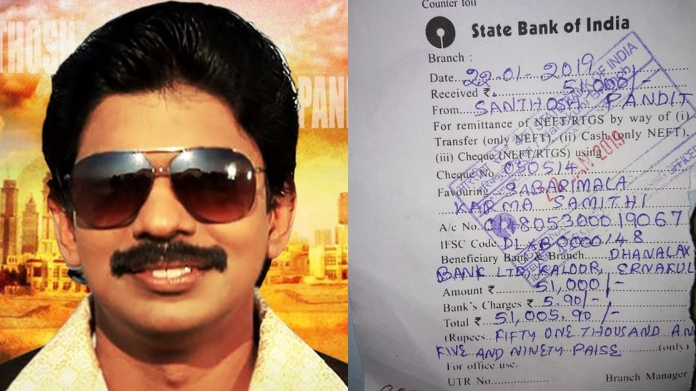 THOSH
PAN
Counter foil
State Bank of India
Branch :
Date 22-01-2019
Received ₹. 51,000/-
From SANTHOSH PANDIT
For remittance of NEFT/RTGS by way of (i)
Transfer (only NEFT), (ii) Cash (only NEFT),
(iii) Cheque (NEFT/RTGS) using
Cheque No. 050514
Favouring SABARIMALA
KARMA SAMITHI
A/c No. 8053000190671
IFSC Code DLXB0000148
Beneficiary Bank & Branch DHANALAX
BANK LTD, KALOOR, ERNAKUL
Amount ₹ 51,000/-
Bank's Charges ₹ 5.90/-
Total ₹ 51,005.90/-
(Rupees FIFTY ONE THOUSAND AN
FIVE AND NINETY PAISE (only)
For office use.
UTR No Branch Manager